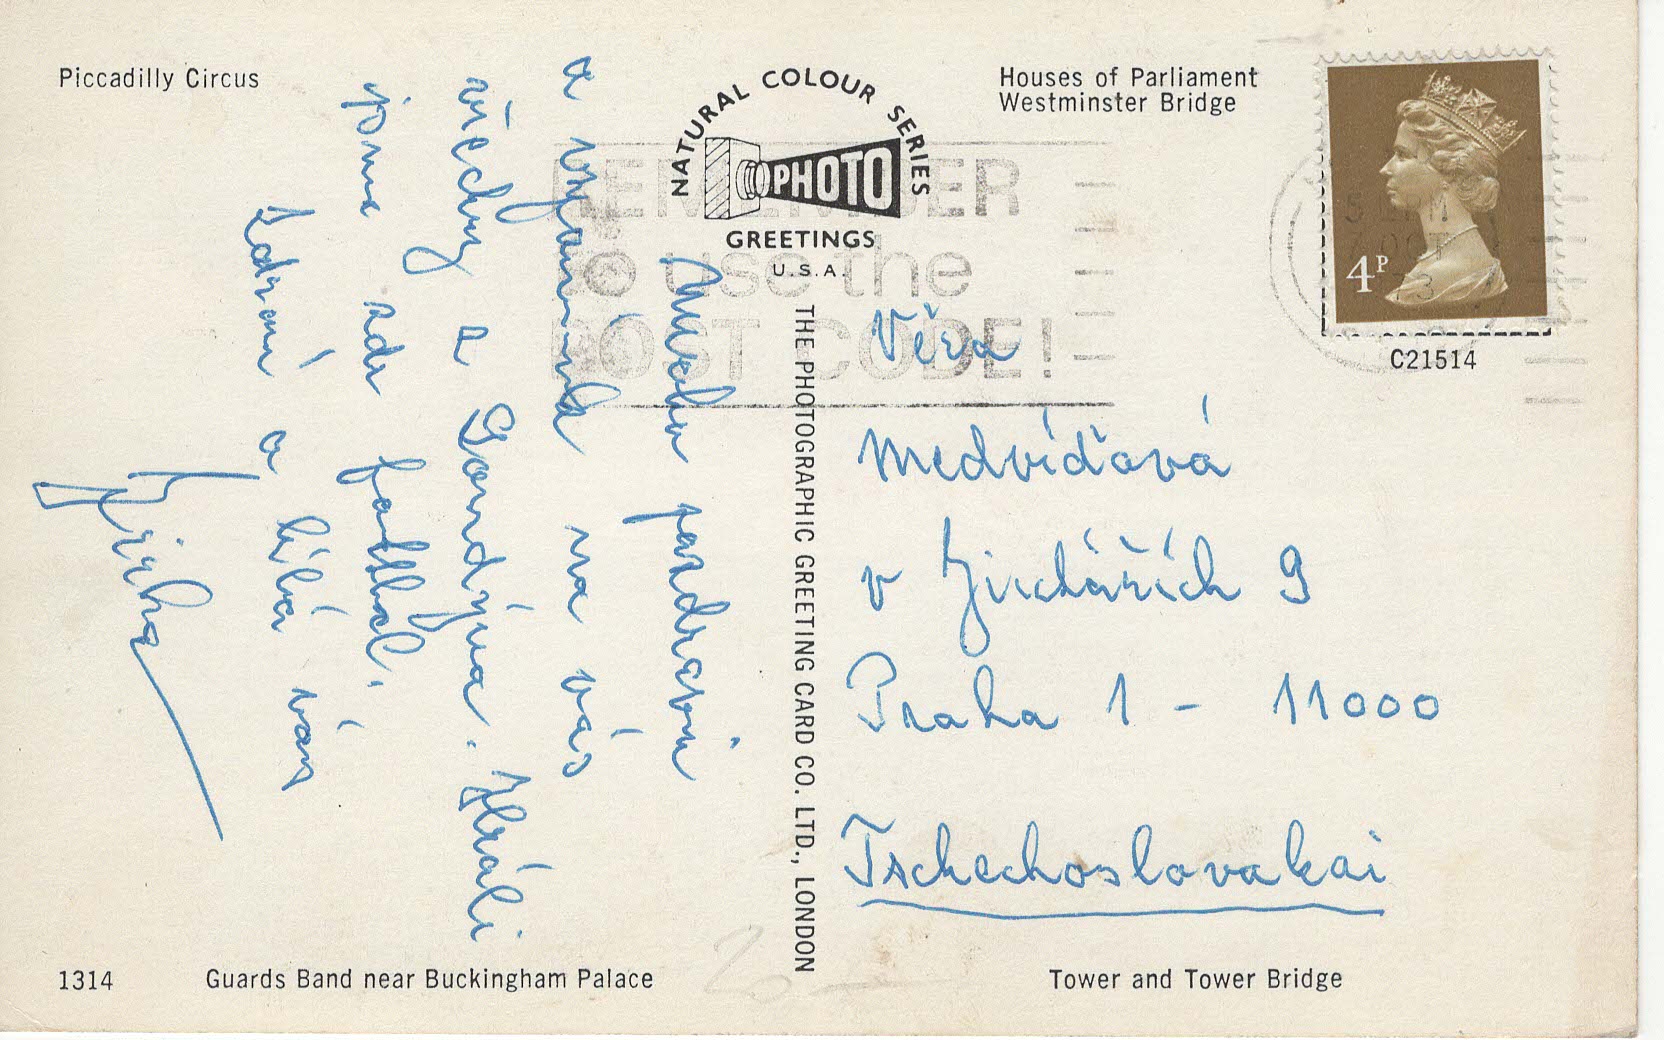 Piccadilly Circus
NATURAL COLOUR SERIES
PHOTO
GREETINGS
U.S.A.
Houses of Parliament
Westminster Bridge
REMEMBER
to use the
POST CODE!
5 PM
7 OCT
73
4P
C21514
Mnoho pozdravů
a vzpomínek na vás
všechny z Londýna. Hráli
jsme zde fotbal.
Zdraví a líbá vás
Jirka
THE PHOTOGRAPHIC GREETING CARD CO. LTD., LONDON
Věra
Medvíďová
v Jirchářích 9
Praha 1 - 11000
Tschechoslovakai
1314
Guards Band near Buckingham Palace
Tower and Tower Bridge